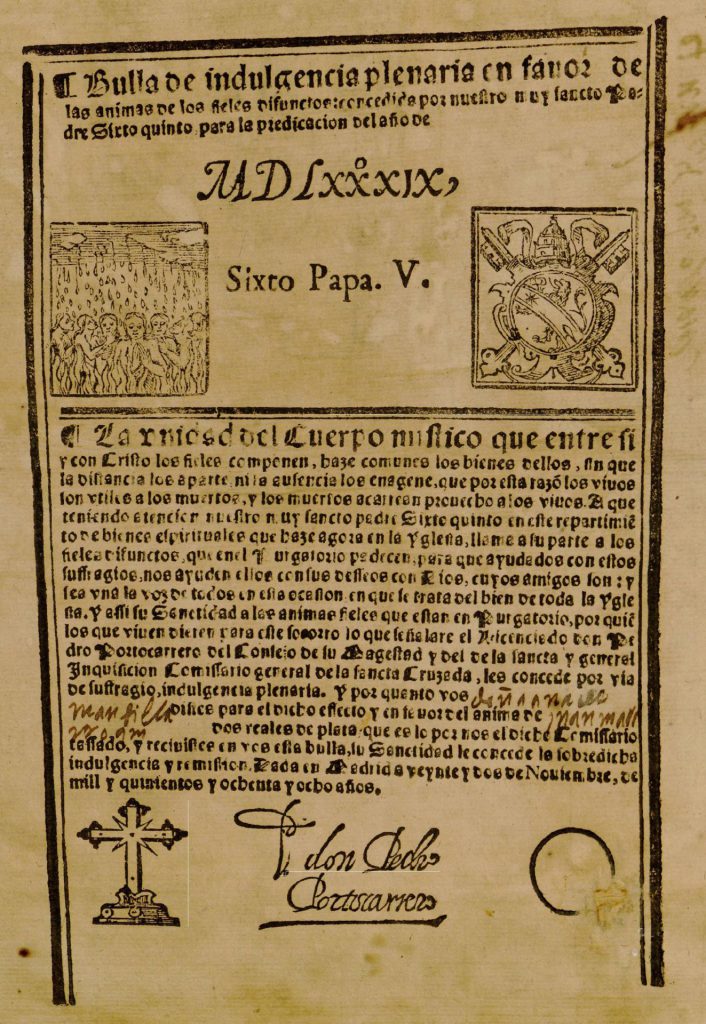 ¶ Bulla de indulgencia plenaria en fauor de
las animas de los fieles difunctos: concedida por nuestro muy sancto Pa-
dre Sixto quinto, para la predicacion del año de
MDLXXXIX,
Sixto Papa. V.
¶ La vnidad del Cuerpo mistico que entre si
y con Cristo los fieles componen, haze comunes los bienes dellos, sin que
la distancia los aparte, ni la ausencia los enagene, que por esta razõ los viuos
son vtiles a los muertos, y los muertos acarrean prouecho a los viuos. A que
teniendo atencion nuestro muy sancto padre Sixto quinto en este repartimiẽ
to de bienes espirituales que haze agora en la Yglesia, llama a su parte a los
fieles difunctos, que en el Purgatorio padecen, para que ayudados con estos
suffragios, nos ayuden ellos con sus desseos con Dios, cuyos amigos son: y
sea vna la voz de todos en esta ocasion en que se trata del bien de toda la Ygle
sia. Y assi su Sanctidad a las animas fieles que estan en Purgatorio, por quiẽ
los que viuen dieren para este socorro lo que señalare el Licenciado don Pe
dro Portocarrero del Consejo de su Magestad y del de la sancta y general
Inquisicion Comissario general de la sancta Cruzada, les concede por via
de suffragio, indulgencia plenaria. Y por quanto vos doña ana de
mansilla distes para el dicho effecto y en fauor del anima de juan
dos reales de plata, que es lo por nos el dicho Comissario
tassado, y reciuistes en vos esta bulla, su Sanctidad le concede la sobredicha
indulgencia y remission. Dada en Madrid a veynte y dos de Nouiembre, de
mill y quinientos y ochenta y ocho años.
don Pedro
Portocarrero